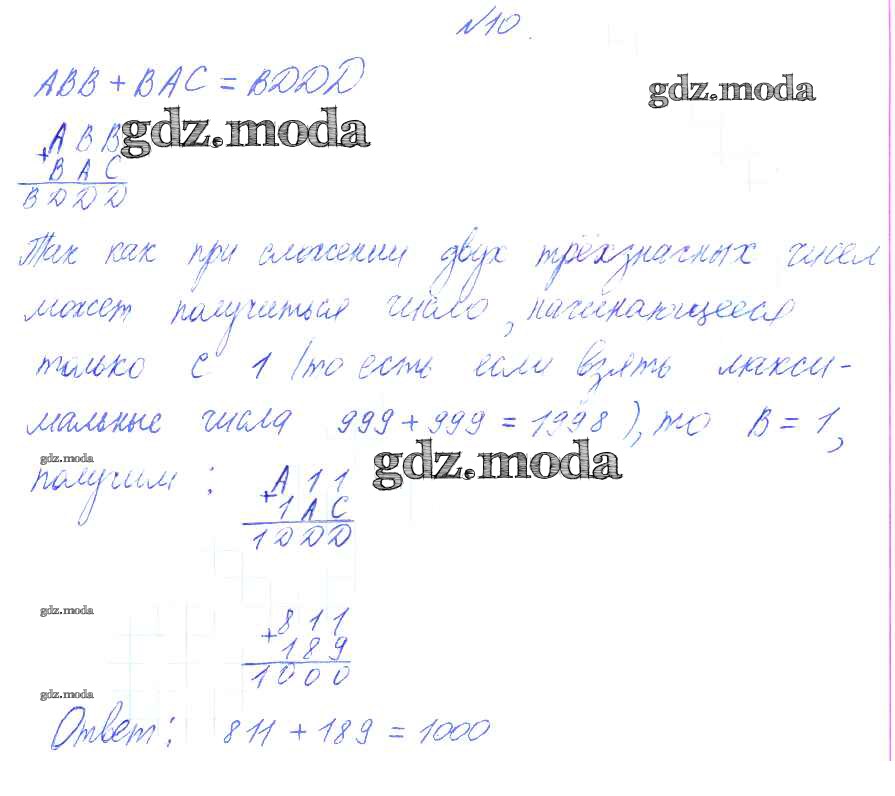 №10.
ABB + BAC = BDDD
gdz.moda
gdz.moda
ABB
+
BAC
BDDD
Так как при сложении двух трёхзначных чисел
может получиться число, начинающееся
только с 1 (то есть если взять макси-
мальные числа 999 + 999 = 1998), то B = 1,
gdz.moda
gdz.moda
получим:
A11
+
1AC
1DDD
gdz.moda
811
+
189
1000
gdz.moda
Ответ: 811 + 189 = 1000